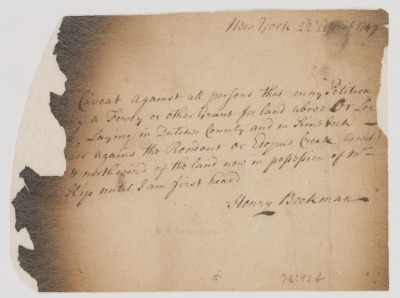 New York 22d August 1749
Caveat against all persons that may Petition
a Ferry or other Grant for land above Or
Laying in Dutches County and in
over agains the Rondout or Esopus Creek
& northward of the land now in possession of Mr
Kip until I am first heard
Henry Beekman